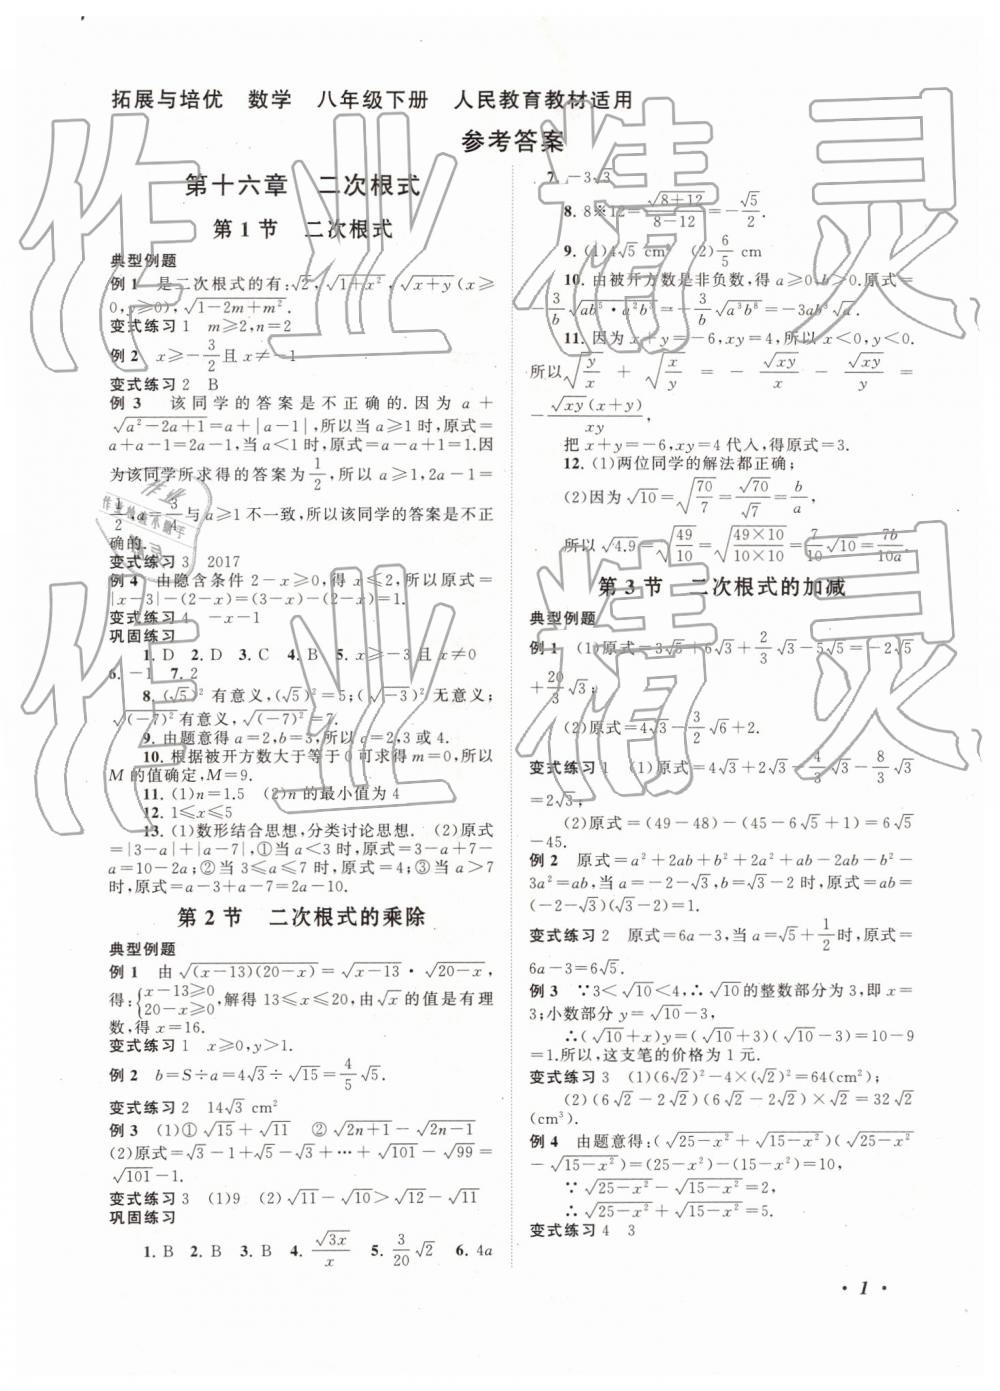 拓展与培优 数学 八年级下册 人民教育教材适用
参考答案
第十六章 二次根式
第 1 节 二次根式
典型例题
例 1 是二次根式的有:√2,√(1+x²),√(x+y)(x≥
0,y≥0),√(1-2m+m²).
变式练习 1 m≥2,n=2
例 2 x≥-3/2且 x≠-1
变式练习 2 B
例 3 该同学的答案是不正确的.因为 a+
√(a²-2a+1)=a+|a-1|,所以当 a≥1 时,原式=
a+a-1=2a-1,当 a<1 时,原式=a-a+1=1.因
为该同学所求得的答案为1/2,所以 a≥1,2a-1=
1/2,a=3/4与 a≥1 不一致,所以该同学的答案是不正
确的.
变式练习 3 2017
例 4 由隐含条件 2-x≥0,得 x≤2,所以原式=
|x-3|-(2-x)=(3-x)-(2-x)=1.
变式练习 4 -x-1
巩固练习
1. D 2. D 3. C 4. B 5. x≥-3 且 x≠0
6. -1 7. 2
8. (√5)² 有意义,(√5)²=5;(√-3)² 无意义;
√(-7)² 有意义,√(-7)²=7.
9. 由题意得 a=2,b=3,所以 c=2,3 或 4.
10. 根据被开方数大于等于 0 可求得 m=0,所以
M 的值确定,M=9.
11. (1)n=1.5 (2)n 的最小值为 4
12. 1≤x≤5
13. (1)数形结合思想,分类讨论思想. (2)原式
=|3-a|+|a-7|,①当 a<3 时,原式=3-a+7-
a=10-2a;②当 3≤a≤7 时,原式=4;③当 a>7
时,原式=a-3+a-7=2a-10.
第 2 节 二次根式的乘除
典型例题
例 1 由√((x-13)(20-x))=√(x-13)·√(20-x),
得:{x-13≥0
20-x≥0,解得 13≤x≤20,由√x的值是有理
数,得 x=16.
变式练习 1 x≥0,y>1.
例 2 b=S÷a=4√3÷√15=4/5√5.
变式练习 2 14√3 cm²
例 3 (1)①√15+√11 ②√(2n+1)-√(2n-1)
(2)原式=√3-1+√5-√3+…+√101-√99=
√101-1.
变式练习 3 (1)9 (2)√11-√10>√12-√11
巩固练习
1. B 2. B 3. B 4. √(3x)/x 5. 3/20√2 6. 4a
7. -3√3
8. 8※12=√(8+12)/(8-12)=-√5/2.
9. (1)4√5 cm (2)6/5 cm
10. 由被开方数是非负数,得 a≥0,b>0.原式=
-3/b√(ab⁵·a²b³)=-3/b√(a³b⁸)=-3ab³√a.
11. 因为 x+y=-6,xy=4,所以 x<0,y<0.
所以√(y/x)+√(x/y)=-√(xy)/x-√(xy)/y=
-√(xy)(x+y)/xy,
把 x+y=-6,xy=4 代入,得原式=3.
12. (1)两位同学的解法都正确;
(2)因为√10=√(70/7)=√70/√7=b/a,
所以√4.9=√(49/10)=√((49×10)/(10×10))=7/10√10=7b/10a.
第 3 节 二次根式的加减
典型例题
例 1 (1)原式=3√5+6√3+2/3√3-5√5=-2√5
+20/3√3;
(2)原式=4√3-3/2√6+2.
变式练习 1 (1)原式=4√3+2√3-4/3√3-8/3√3
=2√3,
(2)原式=(49-48)-(45-6√5+1)=6√5
-45.
例 2 原式=a²+2ab+b²+2a²+ab-2ab-b²-
3a²=ab,当 a=-2-√3,b=√3-2 时,原式=ab=
(-2-√3)(√3-2)=1.
变式练习 2 原式=6a-3,当 a=√5+1/2时,原式=
6a-3=6√5.
例 3 ∵3<√10<4,∴√10的整数部分为 3,即 x
=3;小数部分 y=√10-3,
∴(√10+x)y=(√10+3)(√10-3)=10-9
=1.所以,这支笔的价格为 1 元.
变式练习 3 (1)(6√2)²-4×(√2)²=64(cm²);
(2)(6√2-2√2)(6√2-2√2)×√2=32√2
(cm³).
例 4 由题意得:(√(25-x²)+√(15-x²))(√(25-x²)
-√(15-x²))=(25-x²)-(15-x²)=10,
∵√(25-x²)-√(15-x²)=2,
∴√(25-x²)+√(15-x²)=5.
变式练习 4 3
· 1 ·
作业精灵
作业精灵